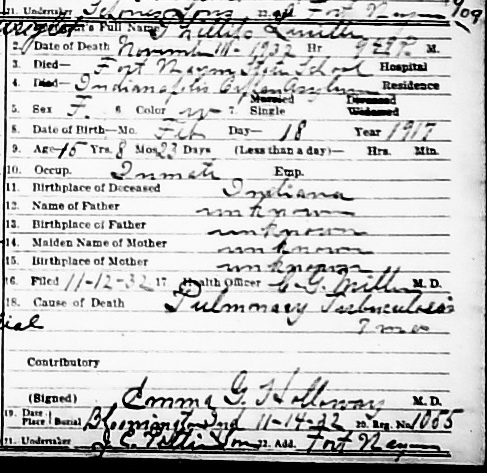 21. Undertaker 22. Add. Fort Wayne 109
Full Name
2. Date of Death November 11 - 1932 Hr 9 P. M.
3. Died— Fort Wayne State School Hospital
4. Died— Indianapolis Orphan Asylum Residence
Married Divorced
5. Sex F. 6. Color w 7. Single Widowed
8. Date of Birth—Mo. Feb Day— 18 Year 1917
9. Age 15 Yrs. 8 Mos 23 Days (Less than a day)— Hrs. Min.
10. Occup. Inmate Emp.
11. Birthplace of Deceased Indiana
12. Name of Father unknown
13. Birthplace of Father unknown
14. Maiden Name of Mother unknown
15. Birthplace of Mother unknown
16. Filed 11-12-32 17. Health Officer G. Miller M. D.
18. Cause of Death Pulmonary Tuberculosis
7 mos
Contributory
(Signed) Emma G. Holloway M. D.
19. Date Place Burial Bloomington Ind 11-14-32 20. Reg. No. 1055
21. Undertaker J. C. 22. Add. Fort Wayne